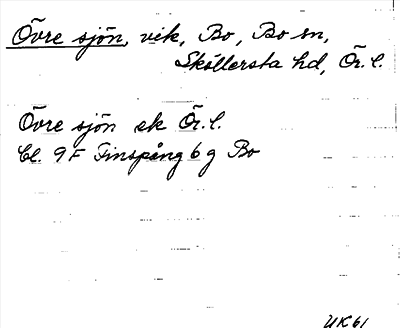 Övre sjön, vik, Bo, Bo sn,
Sköllersta hd, Ör. l.
Övre sjön ek Ör. l.
Bl. 9F Finspång 6 g Bo
UK61